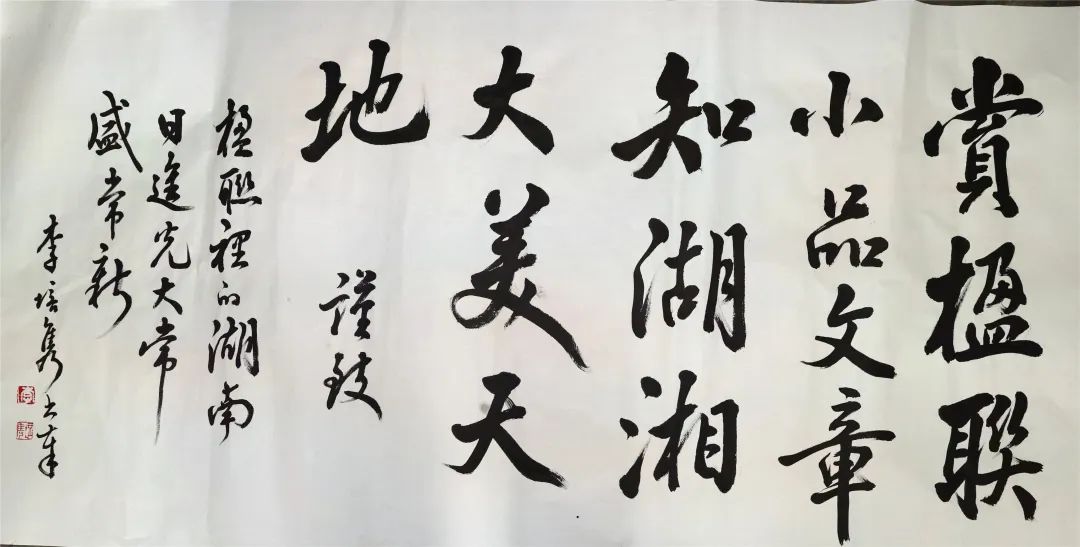 賞楹聯
小品文章
知湖湘
大美天
地 謹致
楹聯裡的湖南
日進光大常
盛常新
李培隽